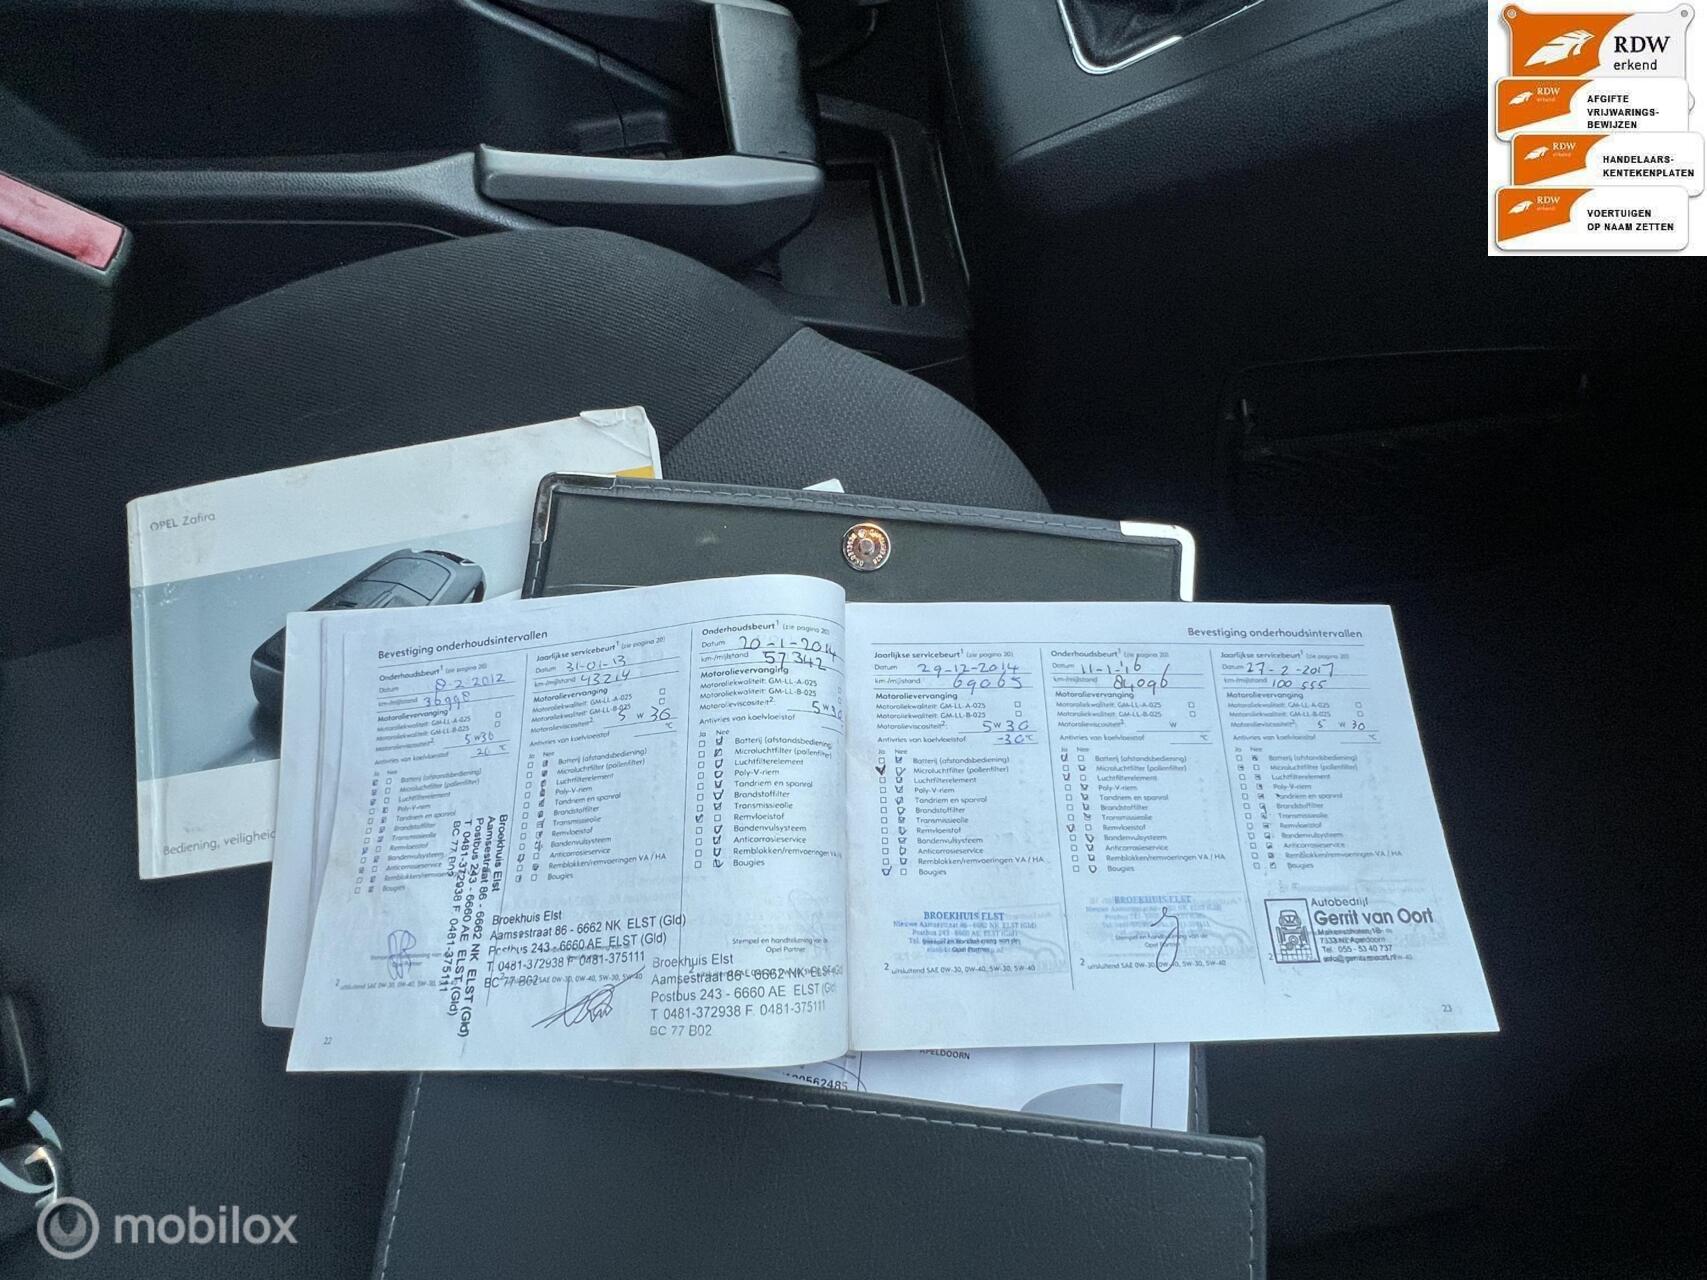 RDW
erkend
RDW
erkend
AFGIFTE
VRIJWARINGS-
BEWIJZEN
RDW
erkend
HANDELAARS-
KENTEKENPLATEN
RDW
erkend
VOERTUIGEN
OP NAAM ZETTEN
OPEL Zafira
Bediening, veiligheid
Bevestiging onderhoudsintervallen
Onderhoudsbeurt¹ (zie pagina 20)
Datum 8-2-2012
km-/mijlstand 36998
Motorolievervanging
Motoroliekwaliteit: GM-LL-A-025
Motoroliekwaliteit: GM-LL-B-025
Motorolieviscositeit² 5w30
Antivries van koelvloeistof 20 °C
Ja Nee
Batterij (afstandsbediening)
Microluchtfilter (pollenfilter)
Luchtfilterelement
Poly-V-riem
Tandriem en spanrol
Brandstoffilter
Transmissieolie
Remvloeistof
Bandenvulsysteem
Anticorrosieservice
Remblokken/remvoeringen VA / HA
Bougies
Broekhuis Elst
Aamsestraat 86 - 6662 NK ELST (Gld)
Postbus 243 - 6660 AE ELST (Gld)
T 0481-372938 F 0481-375111
BC 77 B02
Jaarlijkse servicebeurt¹ (zie pagina 20)
Datum 31-01-13
km-/mijlstand 43214
Motorolievervanging
Motoroliekwaliteit: GM-LL-A-025
Motoroliekwaliteit: GM-LL-B-025
Motorolieviscositeit² 5 W 30
Antivries van koelvloeistof °C
Ja Nee
Batterij (afstandsbediening)
Microluchtfilter (pollenfilter)
Luchtfilterelement
Poly-V-riem
Tandriem en spanrol
Brandstoffilter
Transmissieolie
Remvloeistof
Bandenvulsysteem
Anticorrosieservice
Remblokken/remvoeringen VA / HA
Bougies
Broekhuis Elst
Aamsestraat 86 - 6662 NK ELST (Gld)
Postbus 243 - 6660 AE ELST (Gld)
T 0481-372938 F 0481-375111
BC 77 B02
Onderhoudsbeurt¹ (zie pagina 20)
Datum 20-1-2014
km-/mijlstand 57342
Motorolievervanging
Motoroliekwaliteit: GM-LL-A-025
Motoroliekwaliteit: GM-LL-B-025
Motorolieviscositeit² 5w30
Antivries van koelvloeistof
Ja Nee
Batterij (afstandsbediening)
Microluchtfilter (pollenfilter)
Luchtfilterelement
Poly-V-riem
Tandriem en spanrol
Brandstoffilter
Transmissieolie
Remvloeistof
Bandenvulsysteem
Anticorrosieservice
Remblokken/remvoeringen VA
Bougies
Stempel en handtekening van de
Opel Partner
Broekhuis Elst
Aamsestraat 86 - 6662 NK ELST (Gld
Postbus 243 - 6660 AE ELST (Gld
T 0481-372938 F. 0481-375111
BC 77 B02
22
Bevestiging onderhoudsintervallen
Jaarlijkse servicebeurt¹ (zie pagina 20)
Datum 29-12-2014
km-/mijlstand 69065
Motorolievervanging
Motoroliekwaliteit: GM-LL-A-025
Motoroliekwaliteit: GM-LL-B-025
Motorolieviscositeit² 5w30
Antivries van koelvloeistof -30°C
Ja Nee
Batterij (afstandsbediening)
Microluchtfilter (pollenfilter)
Luchtfilterelement
Poly-V-riem
Tandriem en spanrol
Brandstoffilter
Transmissieolie
Remvloeistof
Bandenvulsysteem
Anticorrosieservice
Remblokken/remvoeringen VA / HA
Bougies
BROEKHUIS ELST
² uitsluitend SAE 0W-30, 0W-40, 5W-30, 5W-40
Onderhoudsbeurt¹ (zie pagina 20)
Datum 11-1-'16
km-/mijlstand 84096
Motorolievervanging
Motoroliekwaliteit: GM-LL-A-025
Motoroliekwaliteit: GM-LL-B-025
Motorolieviscositeit² W
Antivries van koelvloeistof °C
Ja Nee
Batterij (afstandsbediening)
Microluchtfilter (pollenfilter)
Luchtfilterelement
Poly-V-riem
Tandriem en spanrol
Brandstoffilter
Transmissieolie
Remvloeistof
Bandenvulsysteem
Anticorrosieservice
Remblokken/remvoeringen VA / HA
Bougies
BROEKHUIS ELST
² uitsluitend SAE 0W-30, 0W-40, 5W-30, 5W-40
Jaarlijkse servicebeurt¹ (zie pagina 20)
Datum 27-2-2017
km-/mijlstand 100 555
Motorolievervanging
Motoroliekwaliteit: GM-LL-A-025
Motoroliekwaliteit: GM-LL-B-025
Motorolieviscositeit² 5 W 30
Antivries van koelvloeistof °C
Ja Nee
Batterij (afstandsbediening)
Microluchtfilter (pollenfilter)
Luchtfilterelement
Poly-V-riem
Tandriem en spanrol
Brandstoffilter
Transmissieolie
Remvloeistof
Bandenvulsysteem
Anticorrosieservice
Remblokken/remvoeringen VA / HA
Bougies
Autobedrijf
Gerrit van Oort
Tel. 055 - 53 40 737
23
APELDOORN
mobilox